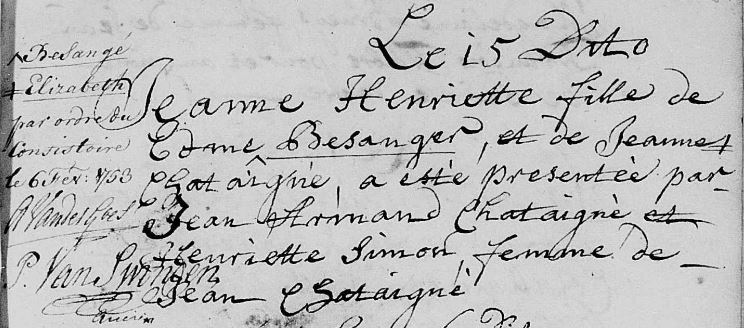 Le 15 Dito
Jeanne Henriette fille de
Edme Besanger, et de Jeanne ‡
Chataîgné, a esté presentée par
Jean Armand Chataigné et
Henriette Simon, femme de
Jean Chataigné
Besangé
‡ Elizabeth
par ordre du
Consistoire
le 6 Fév: 1753
P. Van Swinden
ancien